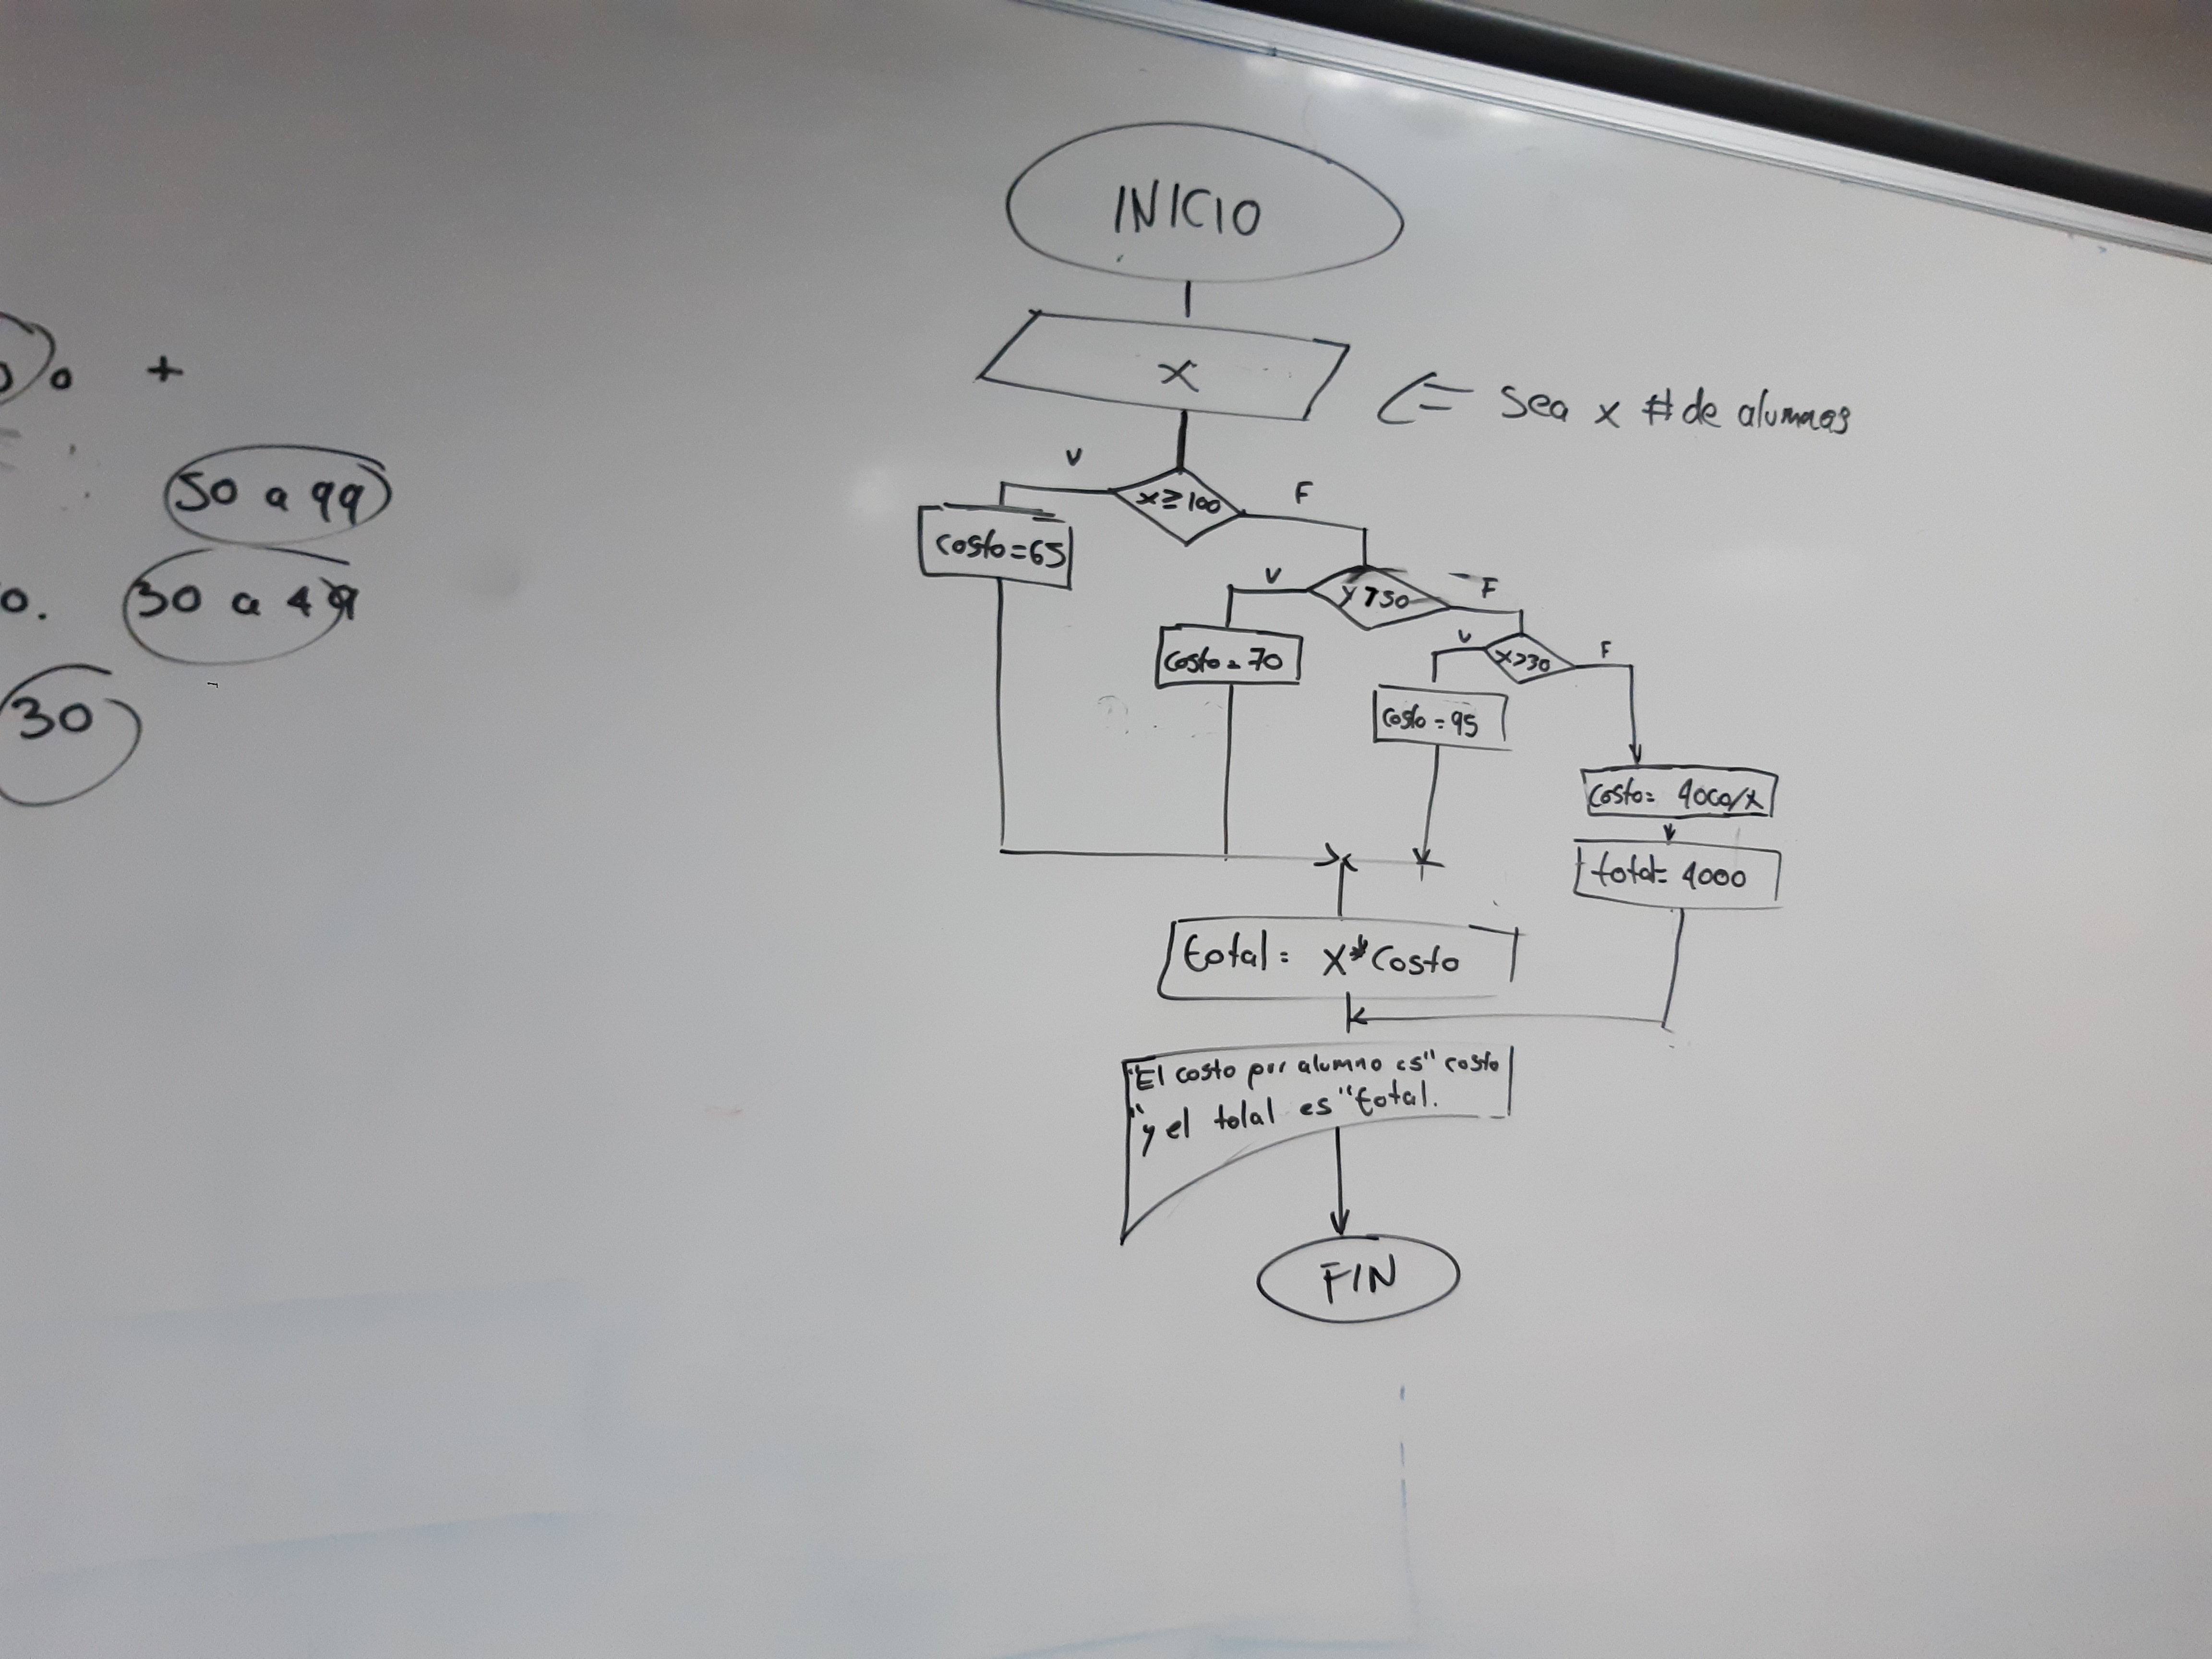 o +
50 a 99
o. 30 a 49
30
INICIO
x
<= Sea x # de alumnos
V
x≥100
F
costo=65
V
F
costo=70
V
x>30
F
costo=95
costo= 4000/x
total= 4000
total= x*costo
"El costo por alumno es" costo
"y el total es" total.
FIN